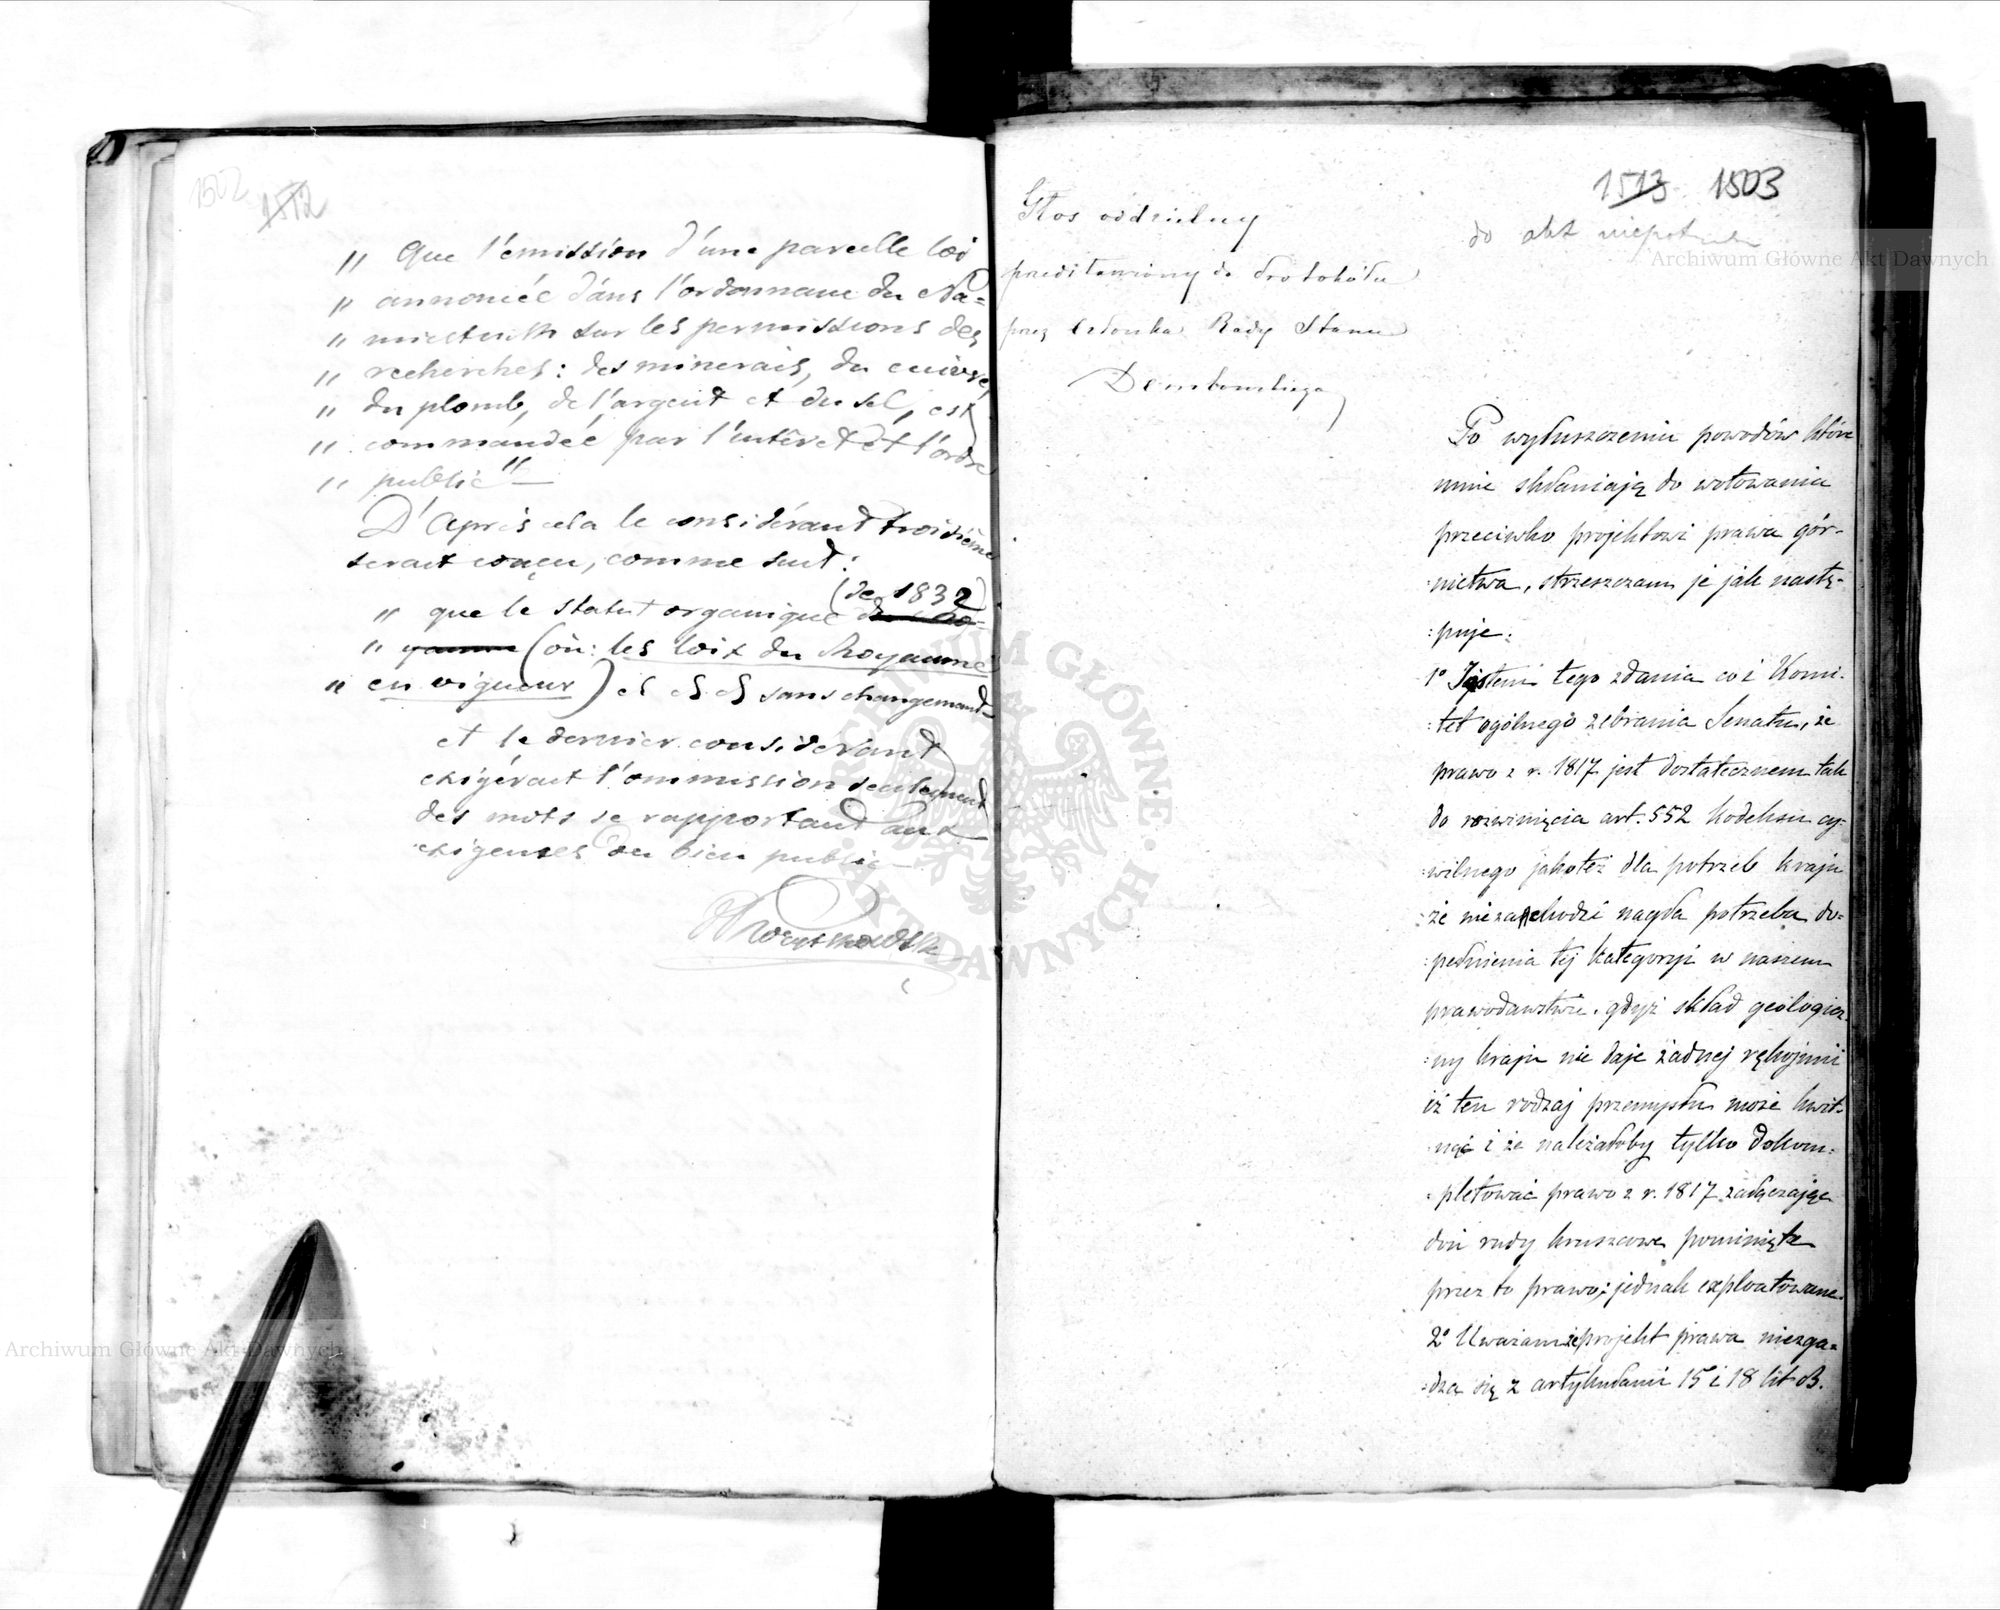 1502 1512
„ Que l'émission d'une pareille loi
„ annoncée dans l'ordonnance du Na=
„ miestnik sur les permissions des
„ recherches: des minerais, du cuivre,
„ du plomb, de l'argent et du sel, est
„ commandée par l'intérêt et l'ordre
„ public"
D'après cela le considérant troisième
serait conçu, comme suit:
(de 1832)
„ que le statut organique du Ro=
„ yaume (où: les loix du Royaume
„ en vigueur) et et et sans changement
et le dernier considérant
exigérait l'ommission seulement
des mots se rapportant aux
exigences du bien public
1513 1503
do akt niepotrzebn
Głos oddzielny
przedstawiony do Protokółu
przez Członka Rady Stanu
Dembowskiego
Po wyłuszczeniu powodów które
mnie skłaniają do wotowania
przeciwko projektowi prawa gór-
:nictwa, streszczam je jak nastę-
:puje:
1º Jestem tego zdania co i Komi-
:tet ogólnego zebrania Senatu, że
prawo z r. 1817 jest dostatecznem tak
do rozwinięcia art. 552 Kodeksu cy-
:wilnego jakoteż dla potrzeb kraju
:że niezachodzi nagła potrzeba do=
:pełnienia tej kategoryi w naszem
prawodawstwie. gdyż skład geologicz-
:ny kraju nie daje żadnej rękojmi
iż ten rodzaj przemysłu może kwit-
:nąć i że należałoby tylko dokom=
:pletować prawo z r. 1817 załączając
doń rudy kruszcowe pominięte
przez to prawo; jednak exploatowane.
2º Uważam że projekt prawa niezga=
:dza się z artykułami 15 i 18 lit B.
ARCHIWUM GŁÓWNE
AKT DAWNYCH
Archiwum Główne Akt Dawnych
Archiwum Główne Akt Dawnych